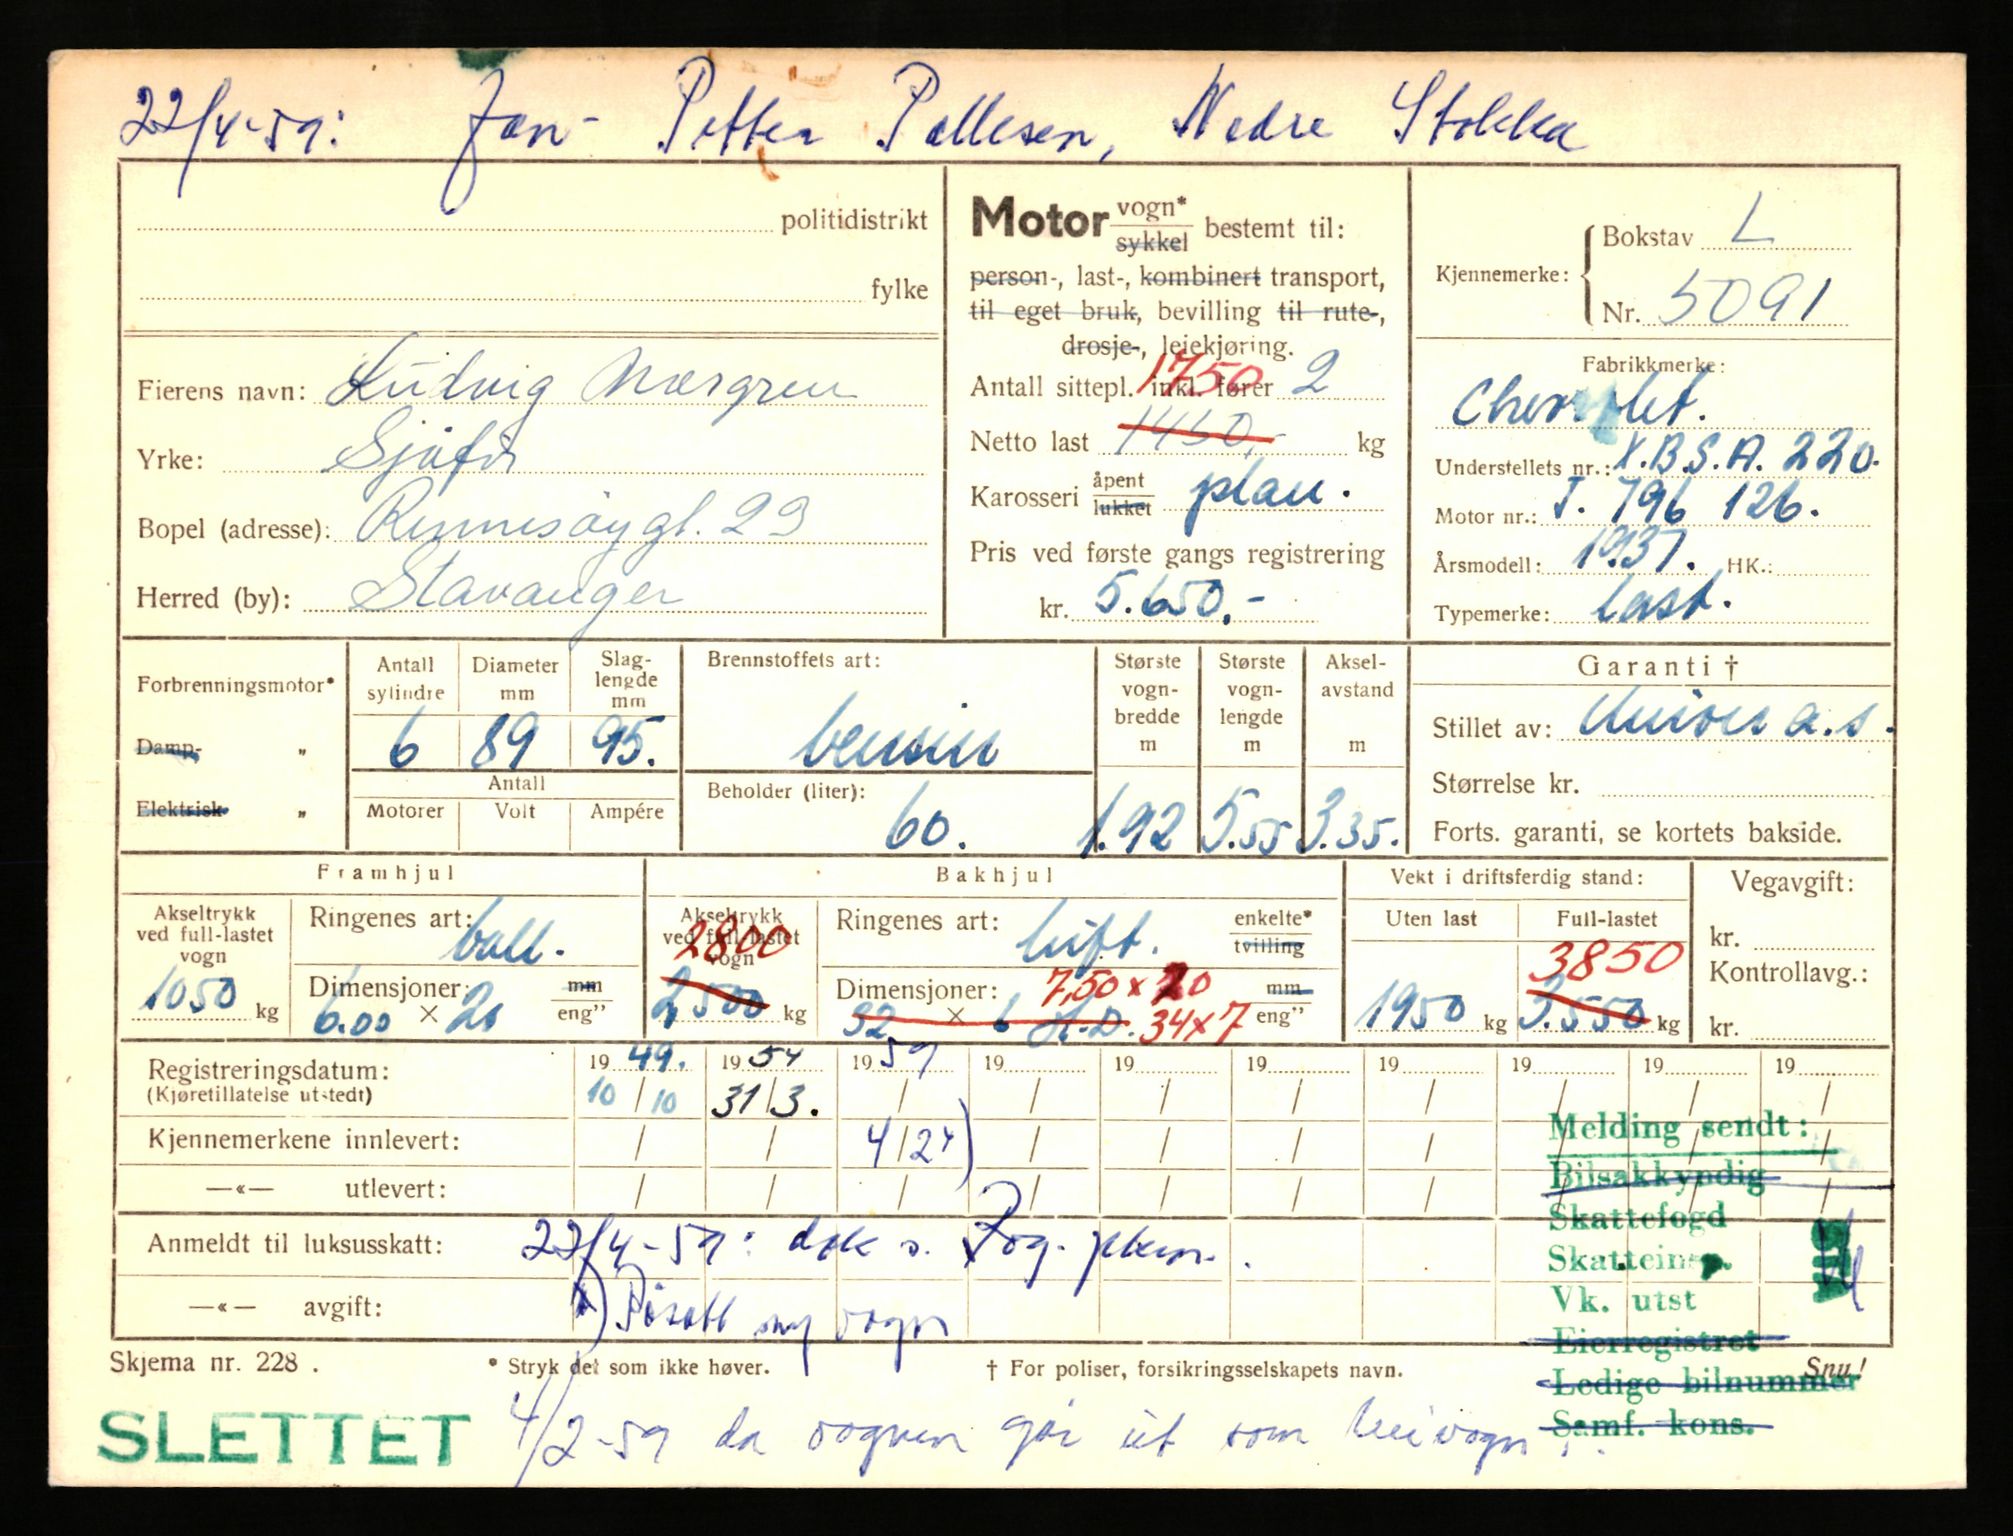 22/4-59: Jan- Petter Pallesen, Nedre Stokka
politidistrikt
fylke
Motor vogn* sykkel bestemt til:
person-, last-, kombinert transport,
til eget bruk, bevilling til rute-,
drosje-, leiekjøring.
Antall sittepl. inkl. fører 2
1750
Netto last 1450,- kg
Karosseri åpent lukket plan.
Pris ved første gangs registrering
kr. 5.650,-
Kjennemerke: Bokstav L
Nr. 5091
Fabrikkmerke:
Chevrolet.
Understellets nr.: X.B.S.A. 220.
Motor nr.: T. 796 126.
Årsmodell: 1937. HK.:
Typemerke: last.
Eierens navn: Ludvig
Yrke: Sjåfør
Bopel (adresse): Rennesøygt. 29
Herred (by): Stavanger
Forbrenningsmotor*
Damp- „
Elektrisk „
Antall sylindre 6
Diameter mm 89
Slaglengde mm 95.
Antall
Motorer Volt Ampére
Brennstoffets art:
bensin
Beholder (liter):
60.
Største vogn-bredde m 1.92
Største vogn-lengde m 5.55
Aksel-avstand m 3.35.
Garanti †
Stillet av: a.s.
Størrelse kr.
Forts. garanti, se kortets bakside.
Framhjul
Akseltrykk ved full-lastet vogn 1050 kg
Ringenes art: ball.
Dimensjoner: 6.00 × 20 mm eng"
Bakhjul
Akseltrykk ved full-lastet vogn 2800
2.500 kg
Ringenes art: luft. enkelte* tvilling
Dimensjoner: 7,50 x 20 mm
32 × 6 H.D. 34x7 eng"
Vekt i driftsferdig stand:
Uten last 1950 kg
Full-lastet 3850
3.550 kg
Vegavgift:
kr.
Kontrollavg.:
kr.
Registreringsdatum: 19 49. 19 54 19 59 19 19 19 19 19 19 19
(Kjøretillatelse utstedt) 10/10 31/3.
Kjennemerkene innlevert: 4/2 x)
—«— utlevert:
Anmeldt til luksusskatt: 22/4-59: dok s. Rog. pkm.
—«— avgift: x) Påsatt ny vogn
Melding sendt:
Bilsakkyndig
Skattefogd
Skatteinsp.
Vk. utst
Eierregistret
Ledige bilnummer
Samf. kons.
Skjema nr. 228.
* Stryk det som ikke høver.
† For poliser, forsikringsselskapets navn.
Snu!
SLETTET
4/2-59 da vognen går ut som leievogn.